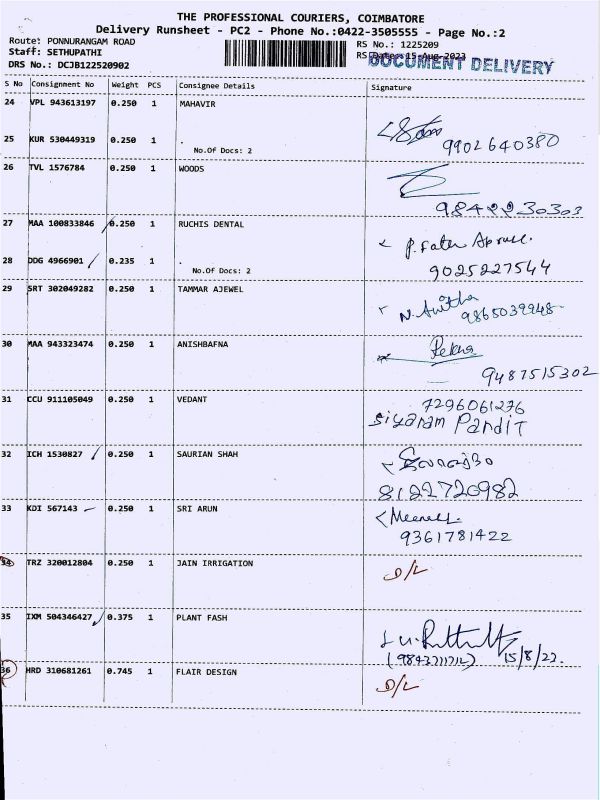 THE PROFESSIONAL COURIERS, COIMBATORE
Delivery Runsheet - PC2 - Phone No.:0422-3505555 - Page No.:2
Route: PONNURANGAM ROAD
RS No.: 1225209
Staff: SETHUPATHI
RS Date: 15-Aug-2023
DOCUMENT DELIVERY
DRS No.: DCJB122520902
S No Consignment No Weight PCS Consignee Details Signature
24 VPL 943613197 0.250 1 MAHAVIR
25 KUR 530449319 0.250 1 .
No.Of Docs: 2
9902640380
26 TVL 1576784 0.250 1 WOODS
9842230303
27 MAA 100833846 0.250 1 RUCHIS DENTAL
28 DDG 4966901 0.235 1 .
No.Of Docs: 2
9025227544
29 SRT 302049282 0.250 1 TAMMAR AJEWEL
N. Anitha
9865039948
30 MAA 943323474 0.250 1 ANISHBAFNA
Rekha
9487515302
31 CCU 911105049 0.250 1 VEDANT
7296061276
Siyaram Pandit
32 ICH 1530827 0.250 1 SAURIAN SHAH
8122720982
33 KDI 567143 0.250 1 SRI ARUN
9361781422
34 TRZ 320012804 0.250 1 JAIN IRRIGATION
D/L
35 IXM 504346427 0.375 1 PLANT FASH
15/8/22.
36 HRD 310681261 0.745 1 FLAIR DESIGN
D/L